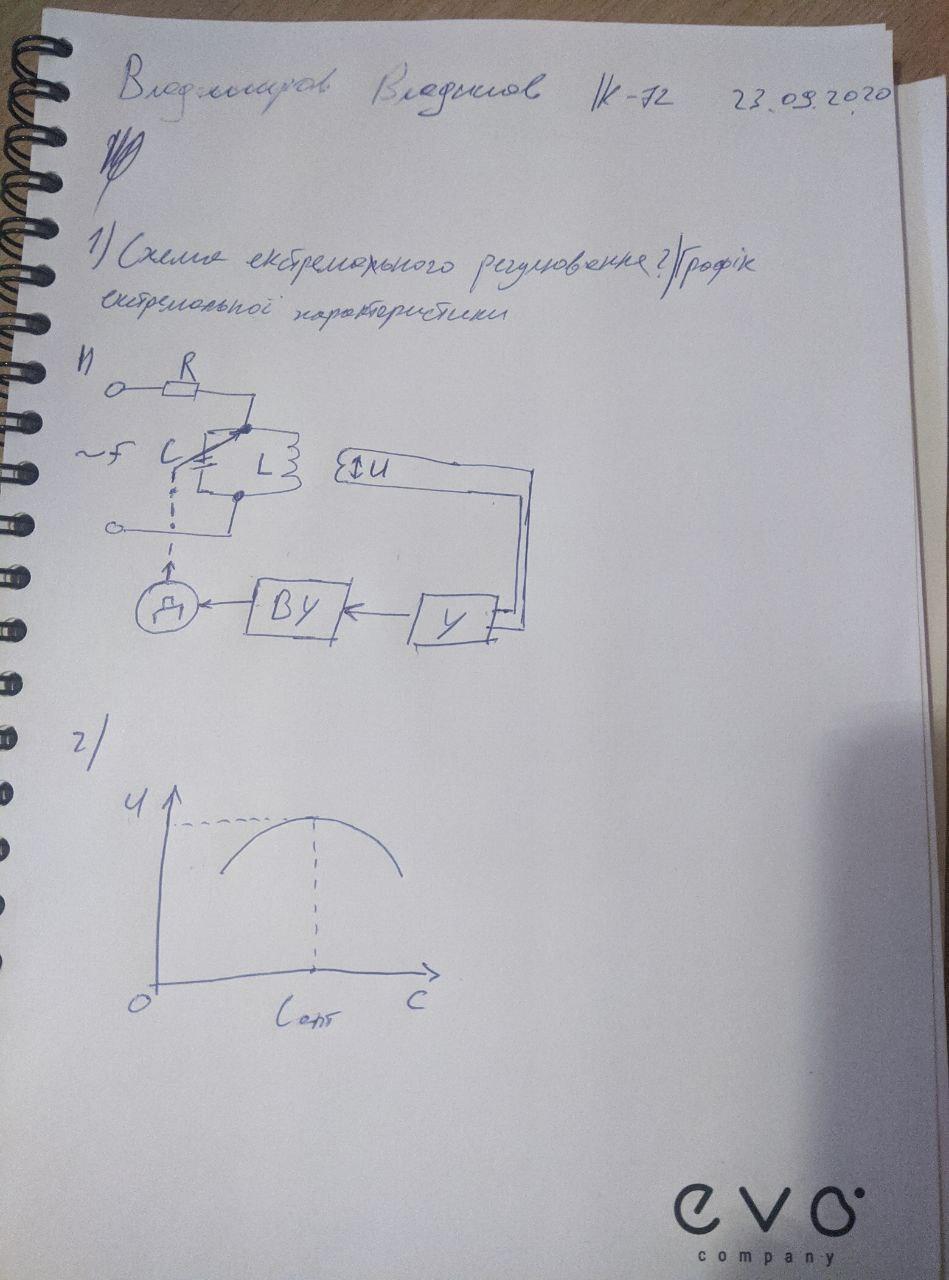 Владимиров Владислав ІК-72 23.09.2020
1) Схема екстремального регулювання 2) Графік
екстремальної характеристики
1)
R
~f C L U
Д ВУ У
2)
U
0 Cопт C
evo
company